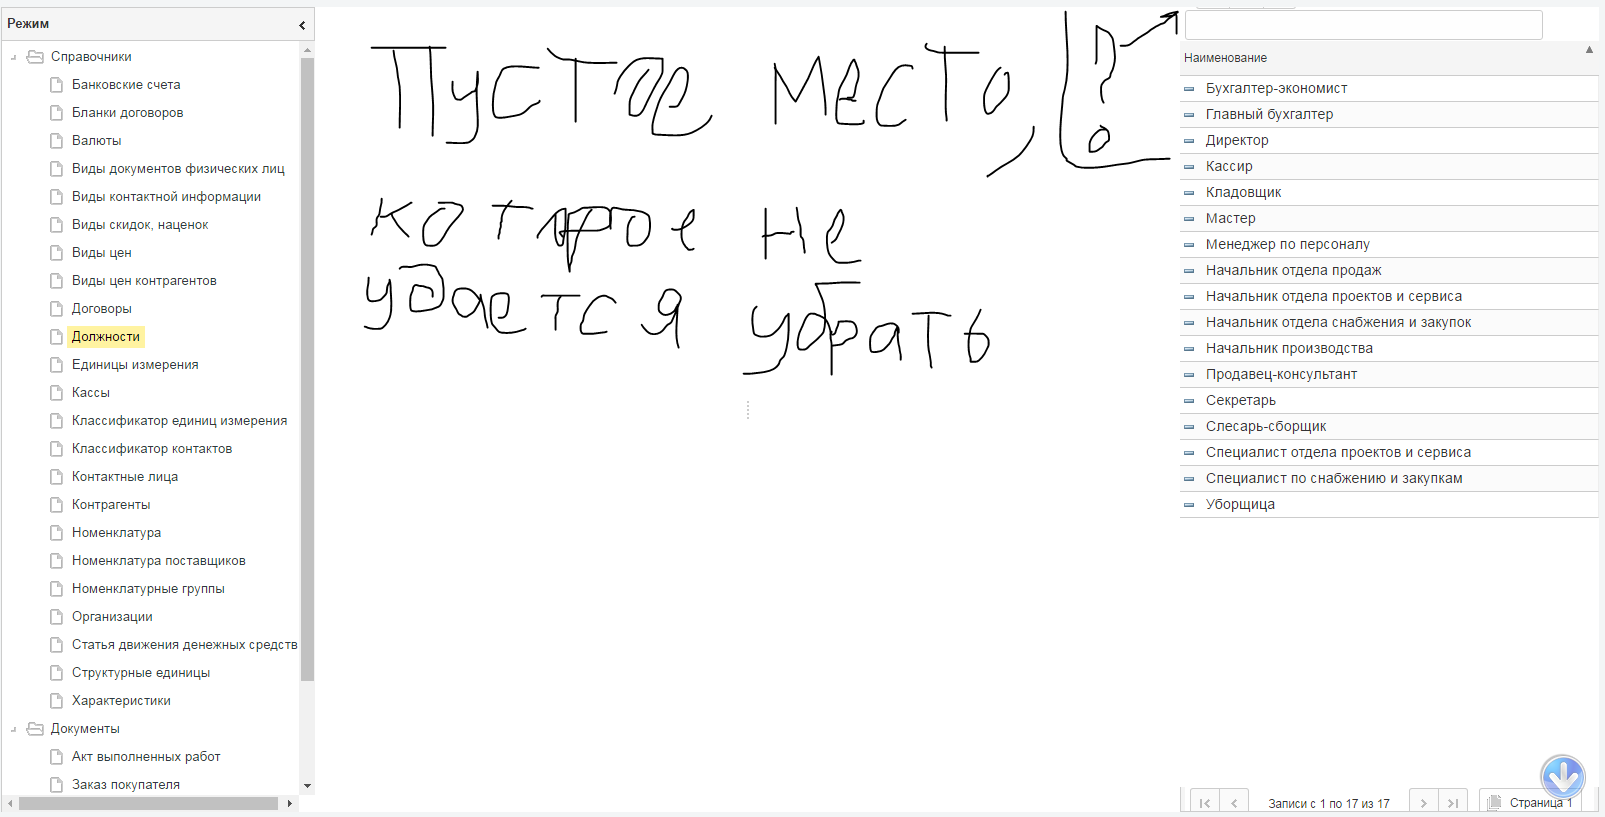 Режим
Справочники
Банковские счета
Бланки договоров
Валюты
Виды документов физических лиц
Виды контактной информации
Виды скидок, наценок
Виды цен
Виды цен контрагентов
Договоры
Должности
Единицы измерения
Кассы
Классификатор единиц измерения
Классификатор контактов
Контактные лица
Контрагенты
Номенклатура
Номенклатура поставщиков
Номенклатурные группы
Организации
Статья движения денежных средств
Структурные единицы
Характеристики
Документы
Акт выполненных работ
Заказ покупателя
Пустое место,
которое не
удается убрать
Наименование
Бухгалтер-экономист
Главный бухгалтер
Директор
Кассир
Кладовщик
Мастер
Менеджер по персоналу
Начальник отдела продаж
Начальник отдела проектов и сервиса
Начальник отдела снабжения и закупок
Начальник производства
Продавец-консультант
Секретарь
Слесарь-сборщик
Специалист отдела проектов и сервиса
Специалист по снабжению и закупкам
Уборщица
Записи с 1 по 17 из 17
Страница 1